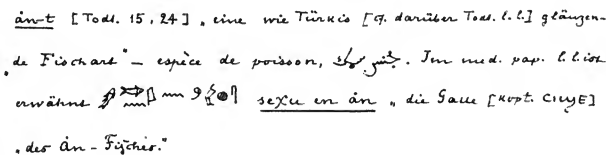 ȧn-t [Todt. 15, 24] „eine wie Türkis [q. darüber Todt. l. l.] glänzen-
„de Fischart" – espèce de poisson, جنس سمك. Im med. pap. l. l. ist
erwähnt seχu en ȧn „die Galle [kopt. ⲥⲓϣⲉ]
„des ȧn-Fisches."